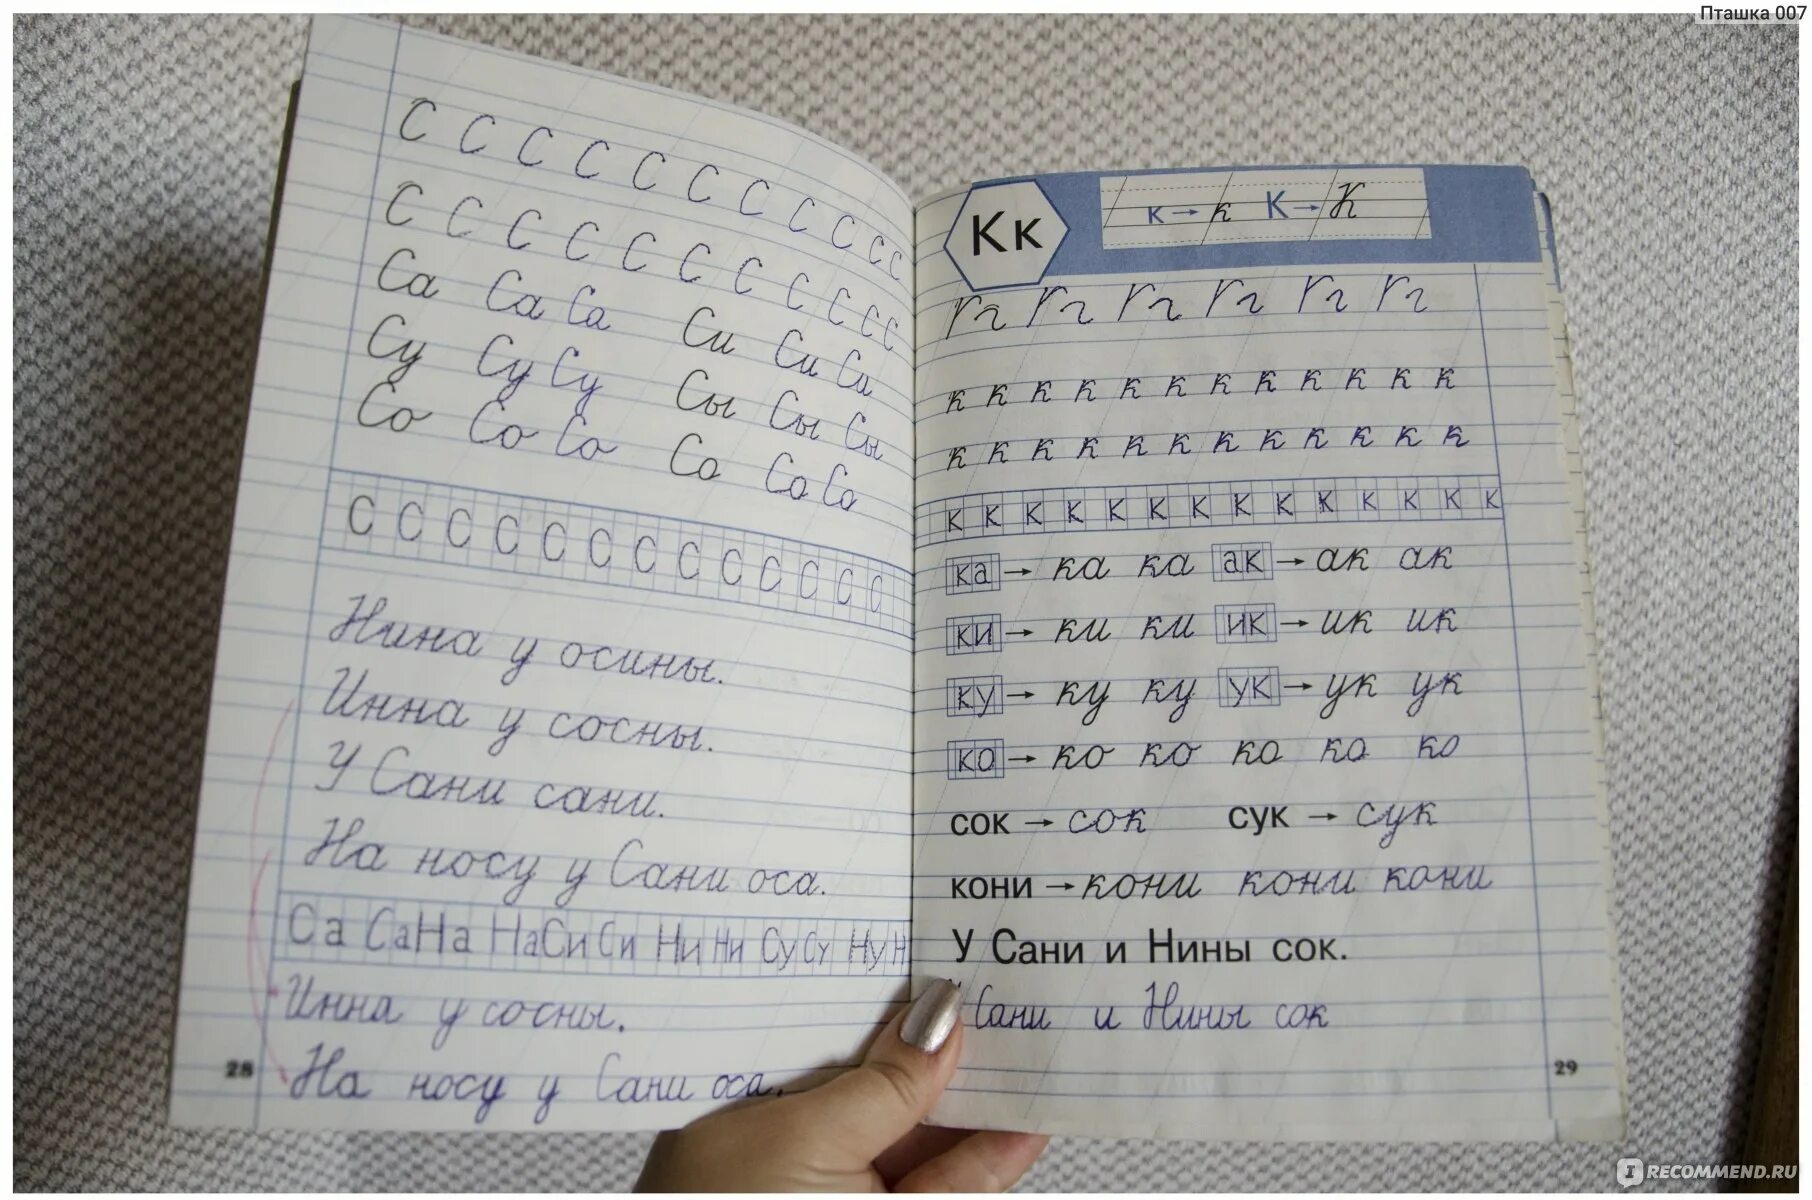 Пташка 007
С С С С С С С С С С С
С С С С С С С С С С С
Са Са Са Си Си Си
Су Су Су Сы Сы Сы
Со Со Со Со Со Со
С С С С С С С С С С С С
Нина у осины.
Инна у сосны.
У Сани сани.
На носу у Сани оса.
Са Са На На Си Си Ни Ни Су Су Ну Н
Инна у сосны.
На носу у Сани оса.
28
Кк к → к К → К
к к к к к к к к к к к к
к к к к к к к к к к к к
к к к к к к к к к к к к к к
ка → ка ка ак → ак ак
ки → ки ки ик → ик ик
ку → ку ку ук → ук ук
ко → ко ко ко ко ко
сок → сок сук → сук
кони → кони кони кони
У Сани и Нины сок.
Сани и Нины сок
29
IRECOMMEND.RU